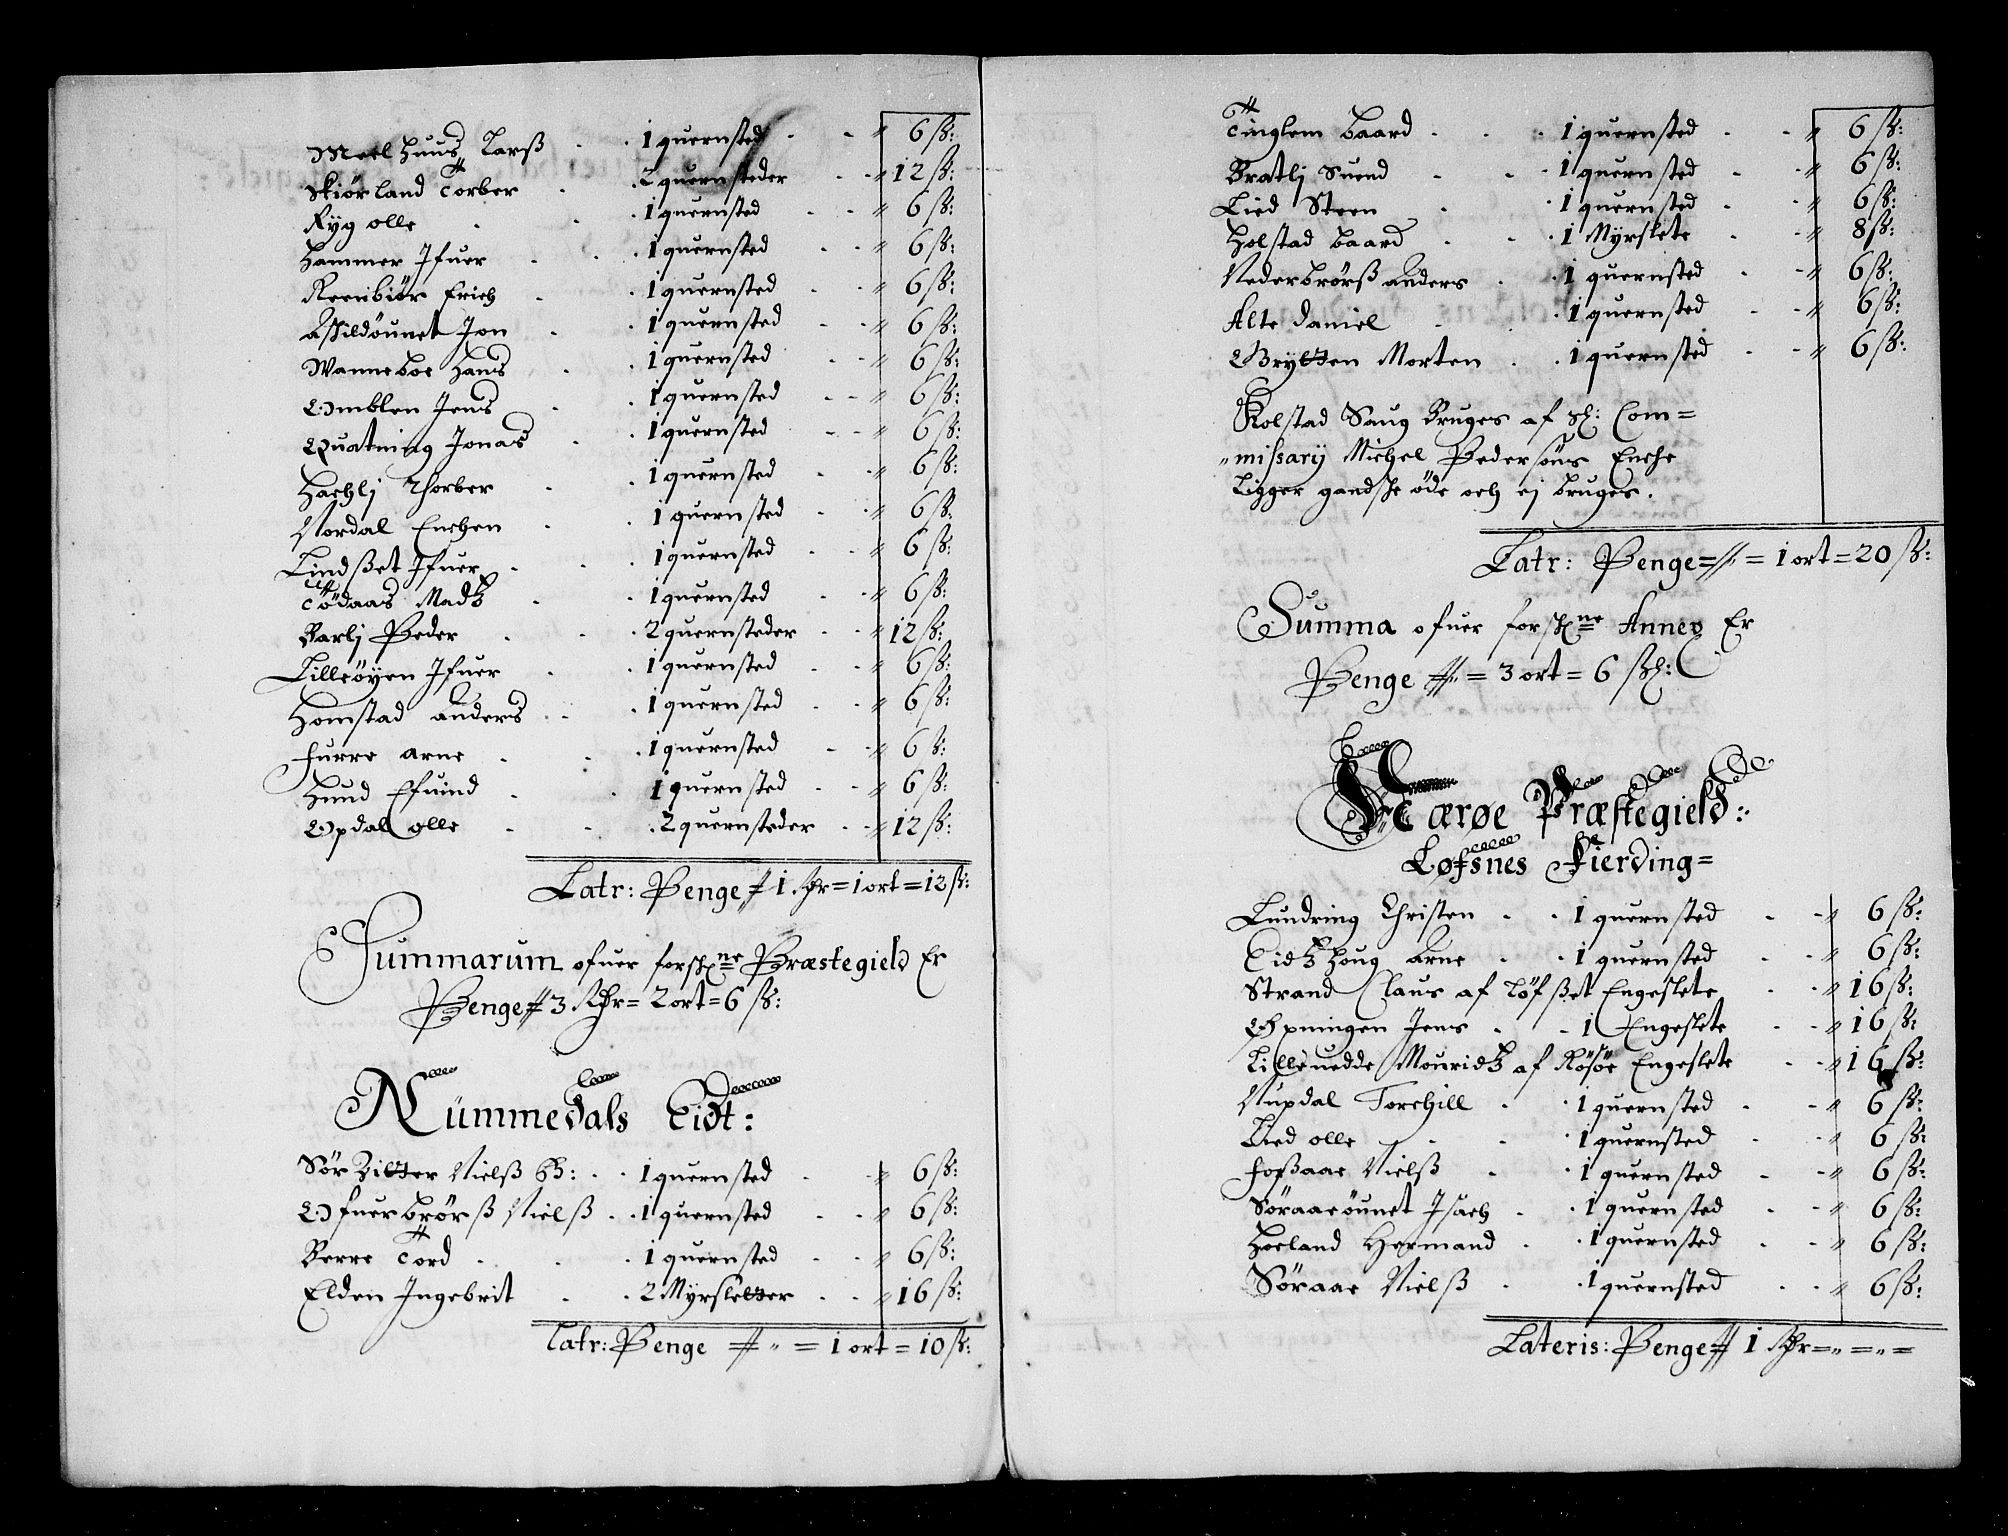 Meelhuus Larß . . 1 quernsted - - 〃 6 ß:
Skiørland Torber . . 2 quernsteder - - 〃 12 ß:
Ryg olle . . 1 quernsted - - 〃 6 ß:
Hammer Ifuer . . 1 quernsted - - 〃 6 ß:
Reenbiør Erich . . 1 quernsted - - 〃 6 ß:
Aßildøunet Jon . . 1 quernsted - - 〃 6 ß:
Wanneboe Hans . . 1 quernsted - - 〃 6 ß:
Omblen Jens . . 1 quernsted - - 〃 6 ß:
Quatning Jonas . . 1 quernsted - - 〃 6 ß:
Hachlj Thorber . . 1 quernsted - - 〃 6 ß:
Nordal Enchen . . 1 quernsted - - 〃 6 ß:
Lindßet Ifuer . . 1 quernsted - - 〃 6 ß:
Tødaas Madtz . . 1 quernsted - - 〃 6 ß:
Barlj Peder . . 2 quernsteder - - 〃 12 ß:
Lilleøyen Ifuer . . 1 quernsted - - 〃 6 ß:
Homstad Anders . . 1 quernsted - - 〃 6 ß:
Furre arne . . 1 quernsted - - 〃 6 ß:
Hund Efuind . . 1 quernsted - - 〃 6 ß:
Opdal olle . . 2 quernsteder - - 〃 12 ß:
Latr: Penge # 1 Rdr = 1 ort = 12 ß:
Summarum ofuer forschne Præstegield Er
Penge # 3 Rdr = 2 ort = 6 ß:
Nümmedals Eidt:
Sør Zitter Nielß . . 1 quernsted - - 〃 6 ß:
Ofuerbrørß Nielß . . 1 quernsted - - 〃 6 ß:
Berre Tord . . 1 quernsted - - 〃 6 ß:
Elden Ingebrit . . 2 Myrsletter - - 〃 16 ß:
Latr: Penge # 〃 = 1 ort = 10 ß:
Tinglem Baard . . 1 quernsted - - 〃 6 ß:
Bratlj Suend . . 1 quernsted - - 〃 6 ß:
Lied Steen . . 1 quernsted - - 〃 6 ß:
Holstad Baard . . 1 Myrslete - - 〃 8 ß:
Nederbrørß Anders . . 1 quernsted - - 〃 6 ß:
Alte Daniel . . 1 quernsted - - 〃 6 ß:
Brytten Morten . . 1 quernsted - - 〃 6 ß:
Kolstad Saug Bruges af Sl: Com=
〃missarij Michel Pedersøns Enche
Ligger gandsche øde och ej bruges.
Latr: Penge = # = 1 ort = 20 ß:
Summa ofuer forschne Annex Er
Penge # = 3 ort = 6 ß:
Nærøe Præstegield:
Løfsnes Fierding =
Lundring Christen . . 1 quernsted - - 〃 6 ß:
Eidtzhoug Arne . . 1 quernsted - - 〃 6 ß:
Strand Claus af Løfßet Engeslete - - 〃 16 ß:
Opningen Jens . . 1 Engeslete - - 〃 16 ß:
Lilleuedde Mouridtz af Røsøe Engeslete - - 〃 16 ß:
Nupdal Torchill . . 1 quernsted - - 〃 6 ß:
Lied olle . . 1 quernsted - - 〃 6 ß:
Foßaae Nielß . . 1 quernsted - - 〃 6 ß:
Søraaeøunet Isach . . 1 quernsted - - 〃 6 ß:
Hoeland Hermand . . 1 quernsted - - 〃 6 ß:
Søraae Nielß . . 1 quernsted - - 〃 6 ß:
Lateris: Penge # 1 Rdr = 〃 = 〃 =